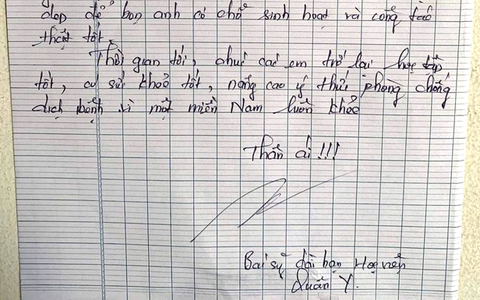 đẹp để bọn anh có chỗ sinh hoạt và công tác
thật tốt.
Thời gian tới, chúc các em trở lại học tập
tốt, có sức khoẻ tốt, nâng cao ý thức phòng chống
dịch bệnh vì một miền Nam luôn khoẻ
Thân ái !!!
Bác sỹ dài hạn Học viện
Quân Y.